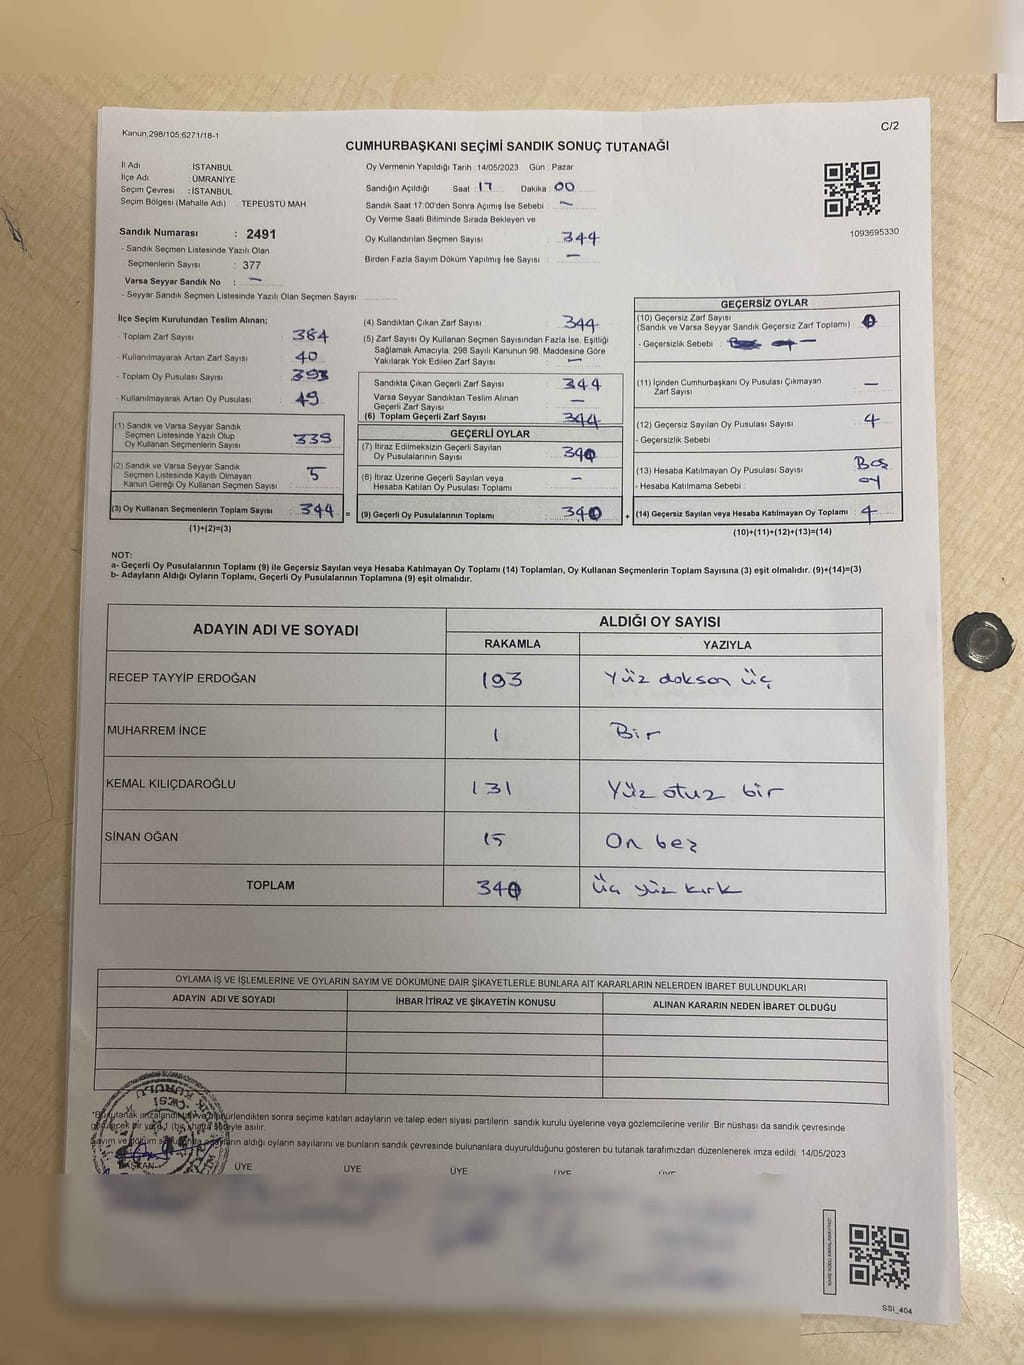 Kanun,298/105,6271/18-1
C/2
CUMHURBAŞKANI SEÇİMİ SANDIK SONUÇ TUTANAĞI
İl Adı : İSTANBUL
İlçe Adı : ÜMRANİYE
Seçim Çevresi : İSTANBUL
Seçim Bölgesi (Mahalle Adı) : TEPEÜSTÜ MAH
Sandık Numarası : 2491
- Sandık Seçmen Listesinde Yazılı Olan
Seçmenlerin Sayısı : 377
Varsa Seyyar Sandık No : -
- Seyyar Sandık Seçmen Listesinde Yazılı Olan Seçmen Sayısı :
Oy Vermenin Yapıldığı Tarih : 14/05/2023 Gün : Pazar
Sandığın Açıldığı Saat : 17 Dakika : 00
Sandık Saat 17:00'den Sonra Açımış İse Sebebi : -
Oy Verme Saati Bitiminde Sırada Bekleyen ve
Oy Kullandırılan Seçmen Sayısı : 344
Birden Fazla Sayım Döküm Yapılmış İse Sayısı : -
1093695330
İlçe Seçim Kurulundan Teslim Alınan;
- Toplam Zarf Sayısı : 384
- Kullanılmayarak Artan Zarf Sayısı : 40
- Toplam Oy Pusulası Sayısı : 393
- Kullanılmayarak Artan Oy Pusulası : 49
(1) Sandık ve Varsa Seyyar Sandık
Seçmen Listesinde Yazılı Olup
Oy Kullanan Seçmenlerin Sayısı : 339
(2) Sandık ve Varsa Seyyar Sandık
Seçmen Listesinde Kayıtlı Olmayan
Kanun Gereği Oy Kullanan Seçmen Sayısı : 5
(3) Oy Kullanan Seçmenlerin Toplam Sayısı : 344 =
(1)+(2)=(3)
(4) Sandıktan Çıkan Zarf Sayısı : 344
(5) Zarf Sayısı Oy Kullanan Seçmen Sayısından Fazla İse, Eşitliği
Sağlamak Amacıyla, 298 Sayılı Kanunun 98. Maddesine Göre
Yakılarak Yok Edilen Zarf Sayısı : -
Sandıkta Çıkan Geçerli Zarf Sayısı : 344
Varsa Seyyar Sandıktan Teslim Alınan
Geçerli Zarf Sayısı : -
(6) Toplam Geçerli Zarf Sayısı : 344
GEÇERLİ OYLAR
(7) İtiraz Edilmeksizin Geçerli Sayılan
Oy Pusulalarının Sayısı : 340
(8) İtiraz Üzerine Geçerli Sayılan veya
Hesaba Katılan Oy Pusulası Toplamı : -
(9) Geçerli Oy Pusulalarının Toplamı : 340 +
GEÇERSİZ OYLAR
(10) Geçersiz Zarf Sayısı
(Sandık ve Varsa Seyyar Sandık Geçersiz Zarf Toplamı) : 0
- Geçersizlik Sebebi :
(11) İçinden Cumhurbaşkanı Oy Pusulası Çıkmayan
Zarf Sayısı : -
(12) Geçersiz Sayılan Oy Pusulası Sayısı : 4
- Geçersizlik Sebebi
(13) Hesaba Katılmayan Oy Pusulası Sayısı : Boş
- Hesaba Katılmama Sebebi : oy
(14) Geçersiz Sayılan veya Hesaba Katılmayan Oy Toplamı : 4
(10)+(11)+(12)+(13)=(14)
NOT:
a- Geçerli Oy Pusulalarının Toplamı (9) ile Geçersiz Sayılan veya Hesaba Katılmayan Oy Toplamı (14) Toplamları, Oy Kullanan Seçmenlerin Toplam Sayısına (3) eşit olmalıdır. (9)+(14)=(3)
b- Adayların Aldığı Oyların Toplamı, Geçerli Oy Pusulalarının Toplamına (9) eşit olmalıdır.
ADAYIN ADI VE SOYADI
ALDIĞI OY SAYISI
RAKAMLA YAZIYLA
RECEP TAYYİP ERDOĞAN 193 Yüz doksan üç
MUHARREM İNCE 1 Bir
KEMAL KILIÇDAROĞLU 131 Yüz otuz bir
SİNAN OĞAN 15 On beş
TOPLAM 340 üç yüz kırk
OYLAMA İŞ VE İŞLEMLERİNE VE OYLARIN SAYIM VE DÖKÜMÜNE DAİR ŞİKAYETLERLE BUNLARA AİT KARARLARIN NELERDEN İBARET BULUNDUKLARI
ADAYIN ADI VE SOYADI İHBAR İTİRAZ VE ŞİKAYETİN KONUSU ALINAN KARARIN NEDEN İBARET OLDUĞU
sonra seçime katılan adayların ve talep eden siyasi partilerin sandık kurulu üyelerine veya gözlemcilerine verilir. Bir nüshası da sandık çevresinde
asılır.
aldığı oyların sayılarını ve bunların sandık çevresinde bulunanlara duyurulduğunu gösteren bu tutanak tarafımızdan düzenlenerek imza edildi. 14/05/2023
BAŞKAN ÜYE ÜYE ÜYE ÜYE
SSI_404